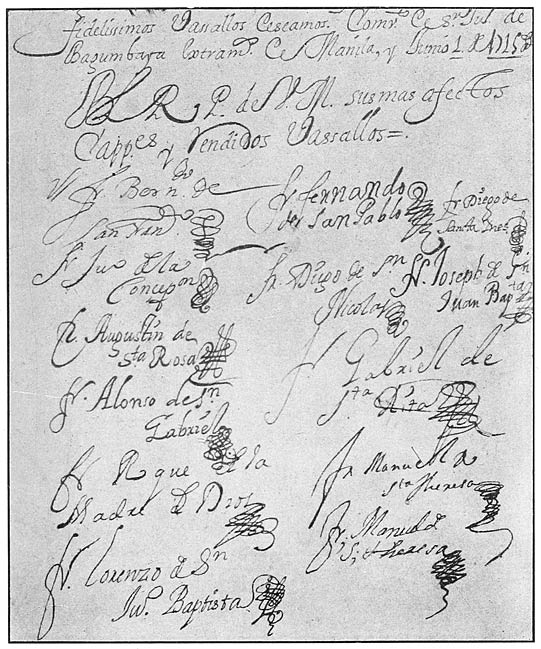 fidelissimos Vassallos Ceseamos. Comv.to de Sn. Jul. de
Bagumbaya extram.s de Manila, y Junio 1 de
B L R P. de V. M. sus mas afectos
Capp.es y Rendidos Vassallos=.
Fr. Bern.do de
San Nan
Fr. fernando
de San Pablo
fr. Diego de
Santa Ines
Fr. Ju.o de la
Concepn
Fr. Diego de Sn
Nicolas
Fr. Joseph de Sn
Juan Bap.ta
Fr. Augustin de
Sta Rosa
Fr. Gabriel de
Sta Rita
Fr. Alonso de Sn
Gabriel
Fr. Roque de la
Madre de Dios
Fr. Manuel de
Sta Theresa
Fr. Lorenzo de Sn
Ju.o Baptista
Fr. Manuel de
S. Theresa